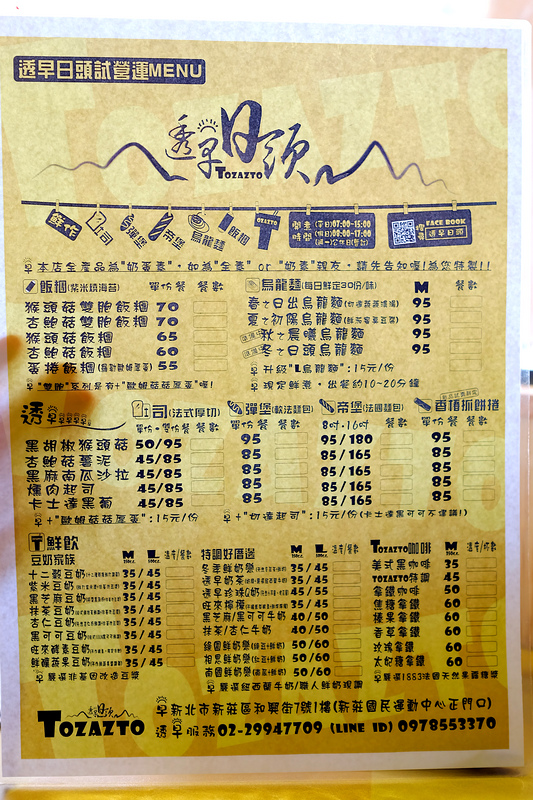 透早日頭試營運MENU
透早日頭
TOZAZTO
鮮作 吐司 彈堡 帝堡 烏龍麵 飯糰 TOZAZTO
營業時間 (平日)07:00-15:00
(假日)09:00-17:00
FACE BOOK
透早日頭
本店全產品為"奶蛋素"。如為"全素" or "奶素"親友。請先告知喔!為您特製!!
飯糰(紫米燒海苔) 單份 餐數
猴頭菇雙胞飯糰 70
杏鮑菇雙胞飯糰 70
猴頭菇飯糰 65
杏鮑菇飯糰 60
蛋捲飯糰 55
烏龍麵(每日鮮定30份/味) M 餐數
春之日出烏龍麵 95
夏之初陽烏龍麵 95
秋之晨曦烏龍麵 95
冬之日頭烏龍麵 95
升級"L烏龍麵":15元/份
現定鮮煮。出餐約10~20分鐘
透早
吐司(法式厚切) 單份 餐數
彈堡(軟法麵包) 單份 餐數
帝堡(法國麵包) 8吋.16吋 餐數
香椿抓餅捲 單份 餐數
黑胡椒猴頭菇 50/95 95 95/180 95
杏鮑菇薯泥 45/85 85 85/165 85
黑麻南瓜沙拉 45/85 85 85/165 85
燻肉起司 45/85 85 85/165 85
卡士達黑葡 45/85 85 85/165 85
+"歐姆菇菇蔬蛋":15元/份
+"奶達起司":15元/份(卡士達黑可可不建議!)
鮮飲
豆奶家族 M L 溫度/餐數
十二穀豆奶 35/45
紫米豆奶 35/45
黑芝麻豆奶 35/45
抹茶豆奶 35/45
杏仁豆奶 35/45
黑可可豆奶 35/45
旺來酵素豆奶 35/45
鮮釀蔬果豆奶 35/45
嚴選非基因改造豆漿
特調好厝選 M L 溫度/餐數
冬季鮮奶戀 35/45
透早奶茶 35/45
透早珍珠Q奶 35/45
旺來檸檬 35/45
黑芝麻/黑可可牛奶 40/50
抹茶/杏仁牛奶 40/50
綠園鮮奶戀 50/60
相思鮮奶戀 50/60
南國鮮奶戀 50/60
嚴選紐西蘭牛奶/職人鮮奶現調
TOZAZTO咖啡 M 溫度/杯數
美式黑咖啡 35
TOZAZTO特調 45
拿鐵咖啡 50
焦糖拿鐵 60
榛果拿鐵 60
香草拿鐵 60
玫瑰拿鐵 60
太妃糖拿鐵 60
嚴選1883法國天然果露糖漿
透早日頭
TOZAZTO
新北市新莊區和興街7號1樓(新莊國民運動中心正門口)
透早服務02-29947709 (LINE ID) 0978553370